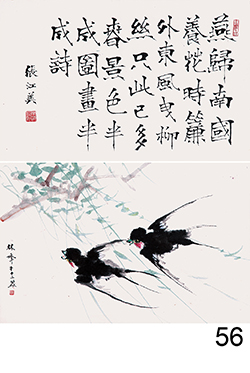 燕歸南國
養花時簾
外東風曳柳
絲只此已多
春景色半
成圖畫半
成詩
張江美
56